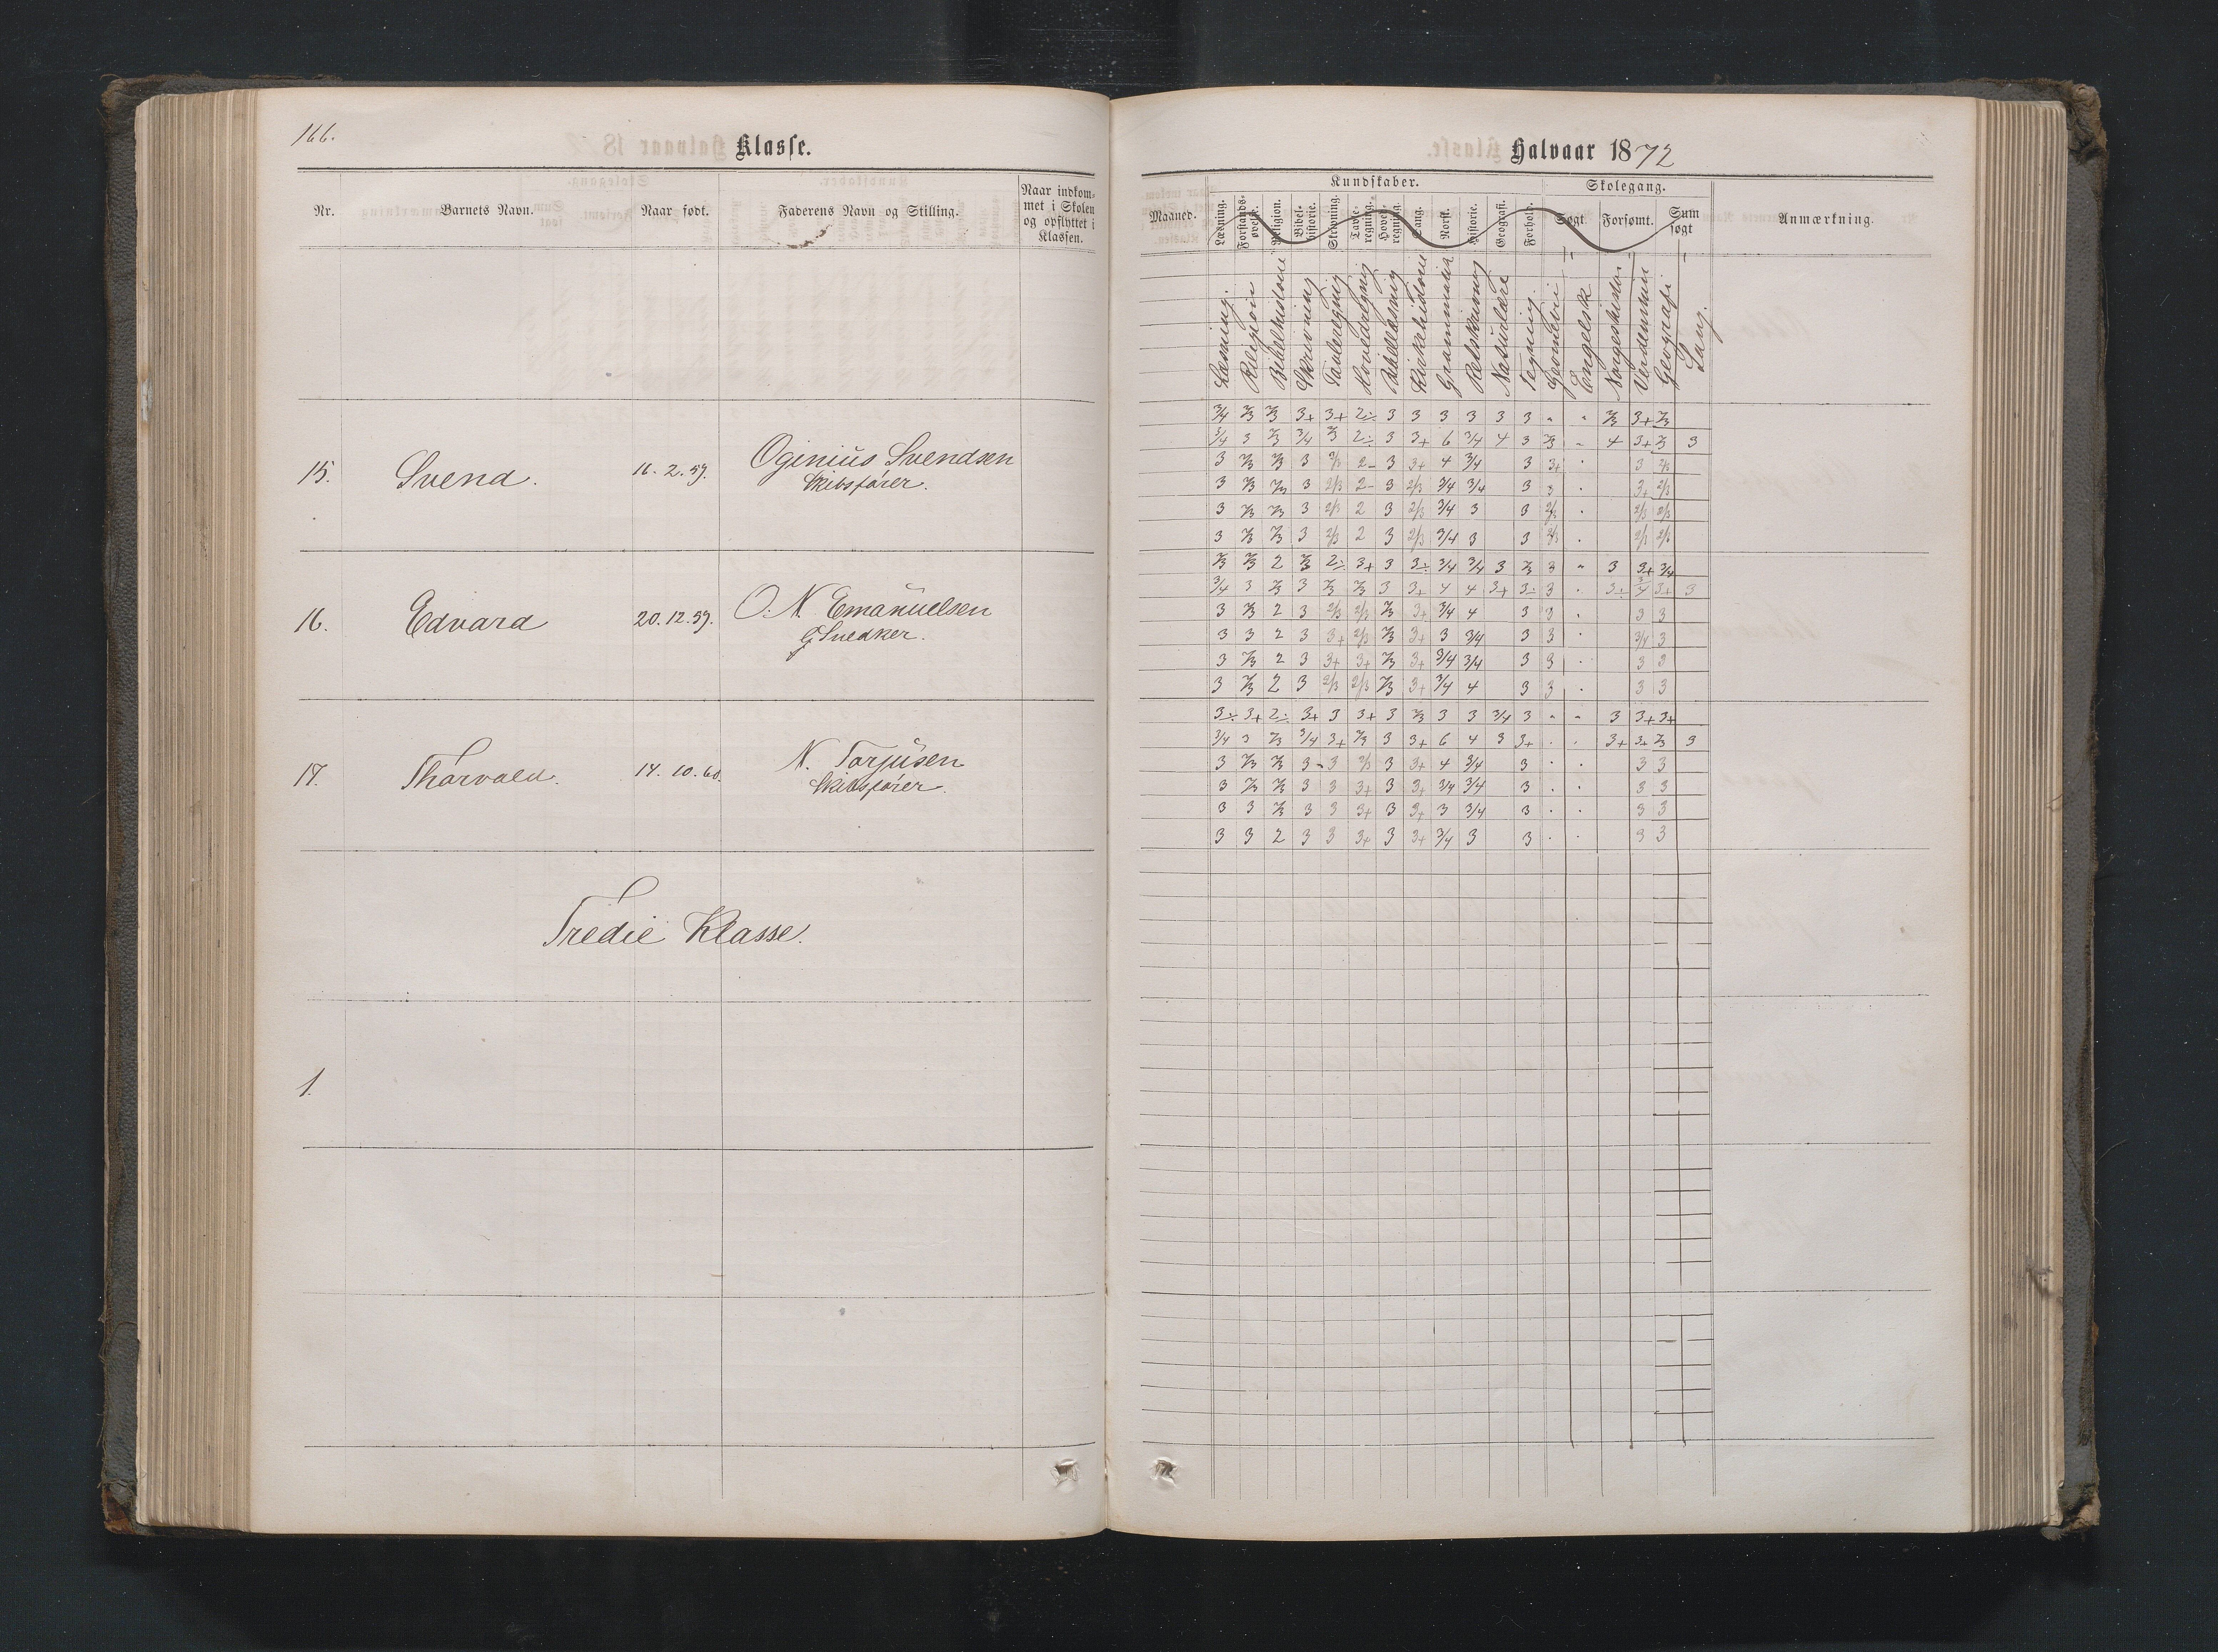 166.
Klasse.
Nr.
Barnets Navn.
Naar født.
Faderens Navn og Stilling.
Naar indkom-
met i Skolen
og opflyttet i
Klassen.
15.
Svend.
16. 2. 59.
Oginius Svendsen
Skibsfører.
16.
Edvard
20. 12. 59.
O. N. Emanuelsen
Snedker.
17.
Thorvald.
14. 10. 60.
N. Torjusen
Skibsfører.
Tredie Klasse.
1.
Halvaar 1872
Maaned.
Kundskaber.
Skolegang.
Anmærkning.
Læsning.
Forstands-
øvelse.
Religion.
Bibel-
historie.
Skrivning.
Tavle-
regning.
Hoved-
regning.
Sang.
Norsk.
Historie.
Geografi.
Forhold.
Søgt.
Forsømt.
Sum
søgt
Læsning.
Religion
Bibelhistorie
Skrivning
Tavleregning
Hovedregning
Kirkehistorie
Grammatik
Retskrivning
Naturlære
Tegning.
Geometri
Engelsk
Norgeshistor
Geografi
Sang.
3/4 2/3 2/3 3+ 3+ 2÷ 3 3 3 3 3 3 " " 2/3 3+ 2/3
3/4 3 2/3 3/4 2/3 2÷ 3 3+ 6 3/4 4 3 2/3 " 4 3+ 2/3 3
3 2/3 2/3 3 2/3 2- 3 3+ 4 3/4 3 3+ . 3 2/3
3 2/3 2/3 3 2/3 2- 3 2/3 3/4 3/4 3 3 . 3+ 2/3
3 2/3 2/3 3 2/3 2 3 2/3 3/4 3 3 2/3 . 2/3 2/3
3 2/3 2/3 3 2/3 2 3 2/3 3/4 3 3 2/3 . 2/3 2/3
2/3 2/3 2 2/3 2÷ 3+ 3 3÷ 3/4 3/4 3 2/3 3 " 3 3+ 3/4
3/4 3 2/3 3 2/3 2/3 3 3+ 4 4 3+ 3÷ 3 . 3÷ 3/4 3+ 3
3 2/3 2 3 2/3 2/3 2/3 3+ 3/4 4 3 3 . 3 3
3 3 2 3 3+ 2/3 2/3 3+ 3 3/4 3 3 . 3/4 3
3 2/3 2 3 3+ 3+ 2/3 3+ 3/4 3/4 3 3 . 3 3
3 2/3 2 3 2/3 2/3 2/3 3+ 3/4 4 3 3 . 3 3
3÷ 3+ 2÷ 3+ 3 3+ 3 2/3 3 3 3/4 3 " " 3 3+ 3+
3/4 3 2/3 3/4 3+ 2/3 3 3+ 6 4 3 3+ . . 3+ 3+ 2/3 3
3 2/3 2/3 3 3 2/3 3 3+ 4 3/4 3 . . 3 3
3 2/3 2/3 3 3 3+ 3 3+ 3/4 3/4 3 . . 3 3
3 3 2/3 3 3 3+ 3 3+ 3 3/4 3 . . 3 3
3 3 2 3 3 3+ 3 3+ 3/4 3 3 . . 3 3